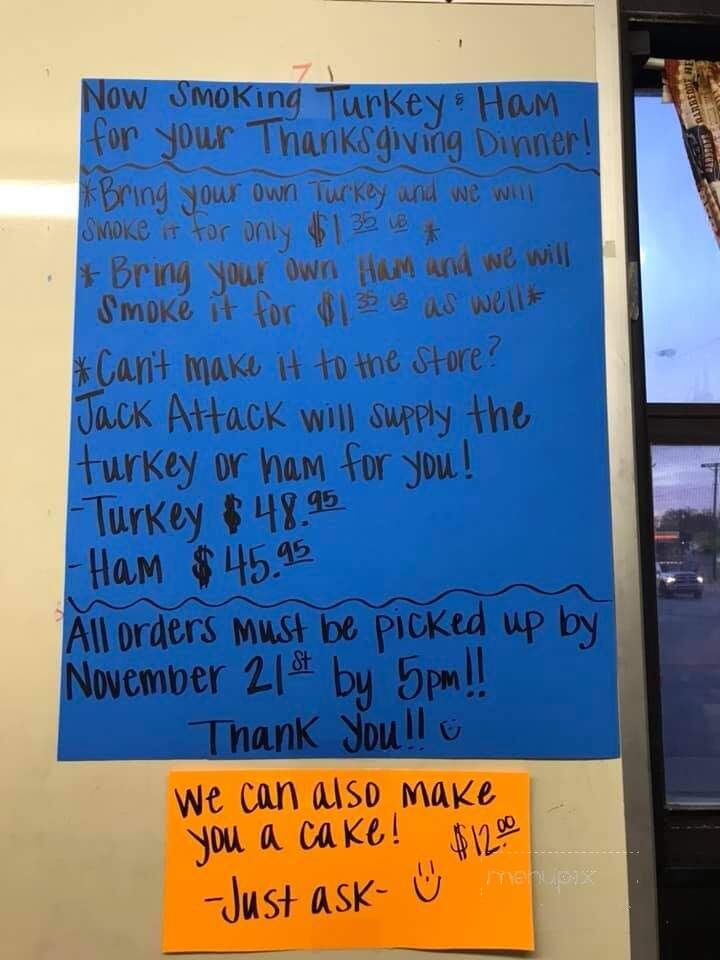 Now Smoking Turkey & Ham
for your Thanksgiving Dinner!
*Bring your own Turkey and we will
smoke it for only $1.35 LB *
* Bring your own Ham and we will
Smoke it for $1.35 LB as well*
*Can't make it to the store?
Jack Attack will supply the
turkey or ham for you!
-Turkey $48.95
-Ham $45.95
All orders must be picked up by
November 21st by 5pm!!
Thank You!!
We can also make
you a cake! $12.00
-Just ask-
menupix